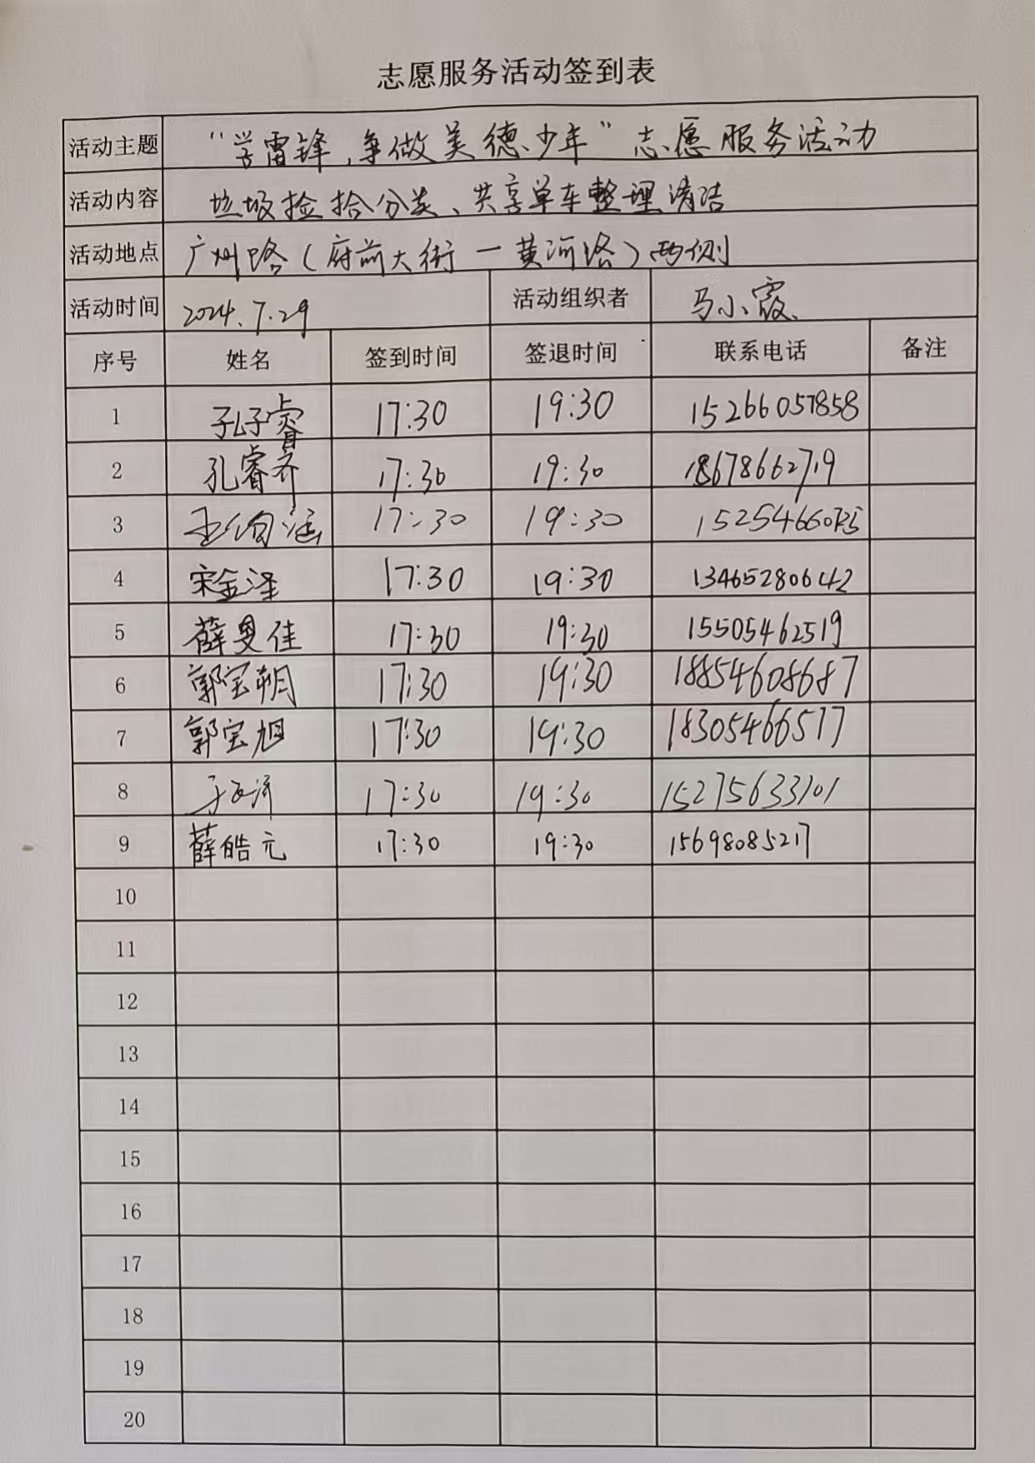 志愿服务活动签到表
活动主题 “学雷锋,争做美德少年”志愿服务活动
活动内容 垃圾捡拾分类、共享单车整理清洁
活动地点 广州路(府前大街一黄河路)两侧
活动时间 2024.7.29 活动组织者 马小霞
序号 姓名 签到时间 签退时间 联系电话 备注
1 孔子睿 17:30 19:30 15266057858
2 孔睿齐 17:30 19:30 18678662719
3 17:30 19:30
4 宋金泽 17:30 19:30 13465280642
5 薛曼佳 17:30 19:30 15505462519
6 郭宝朔 17:30 19:30 18854608687
7 郭宝旭 17:30 19:30 18305466517
8 17:30 19:30 15275633101
9 薛皓元 17:30 19:30 15698085217
10
11
12
13
14
15
16
17
18
19
20